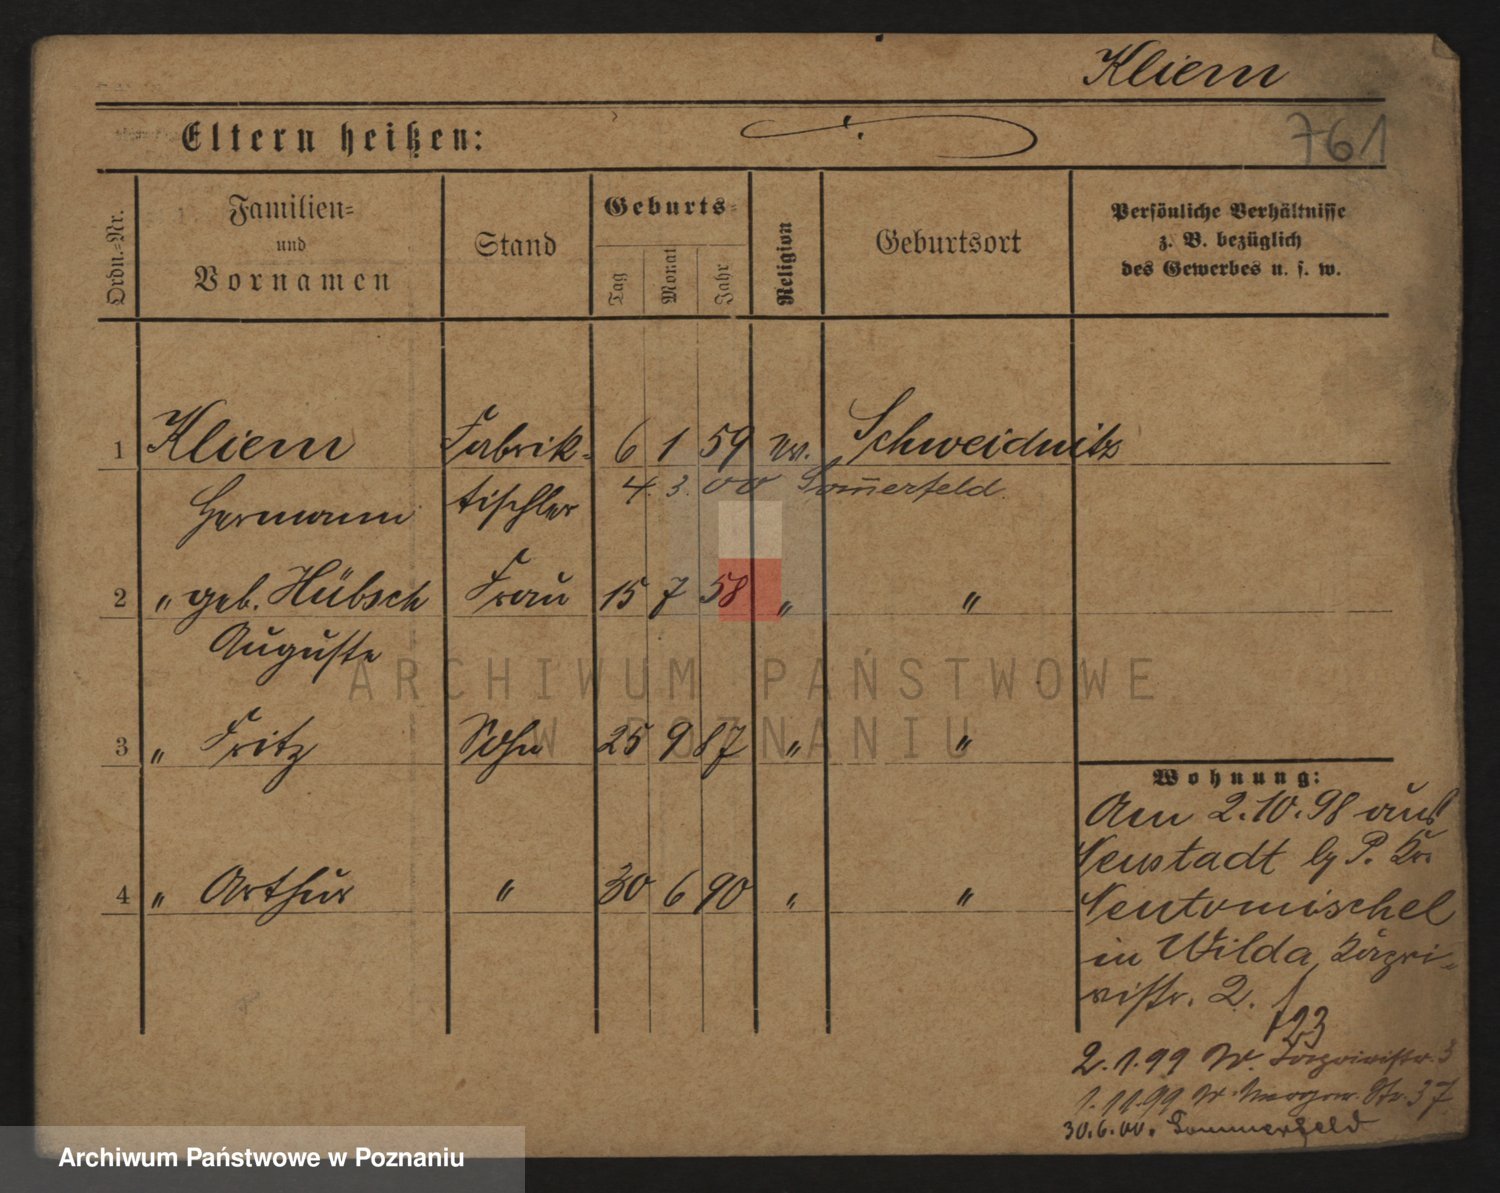 Kliem
Eltern heißen:
761
Ordn.=Nr.
Familien=
und
Vornamen
Stand
Geburts=
Tag
Monat
Jahr
Religion
Geburtsort
Persönliche Verhältnisse
z. B. bezüglich
des Gewerbes u. s. w.
1 Kliem Fabrik= 6 1 59 ev. Schweidnitz
4. 3. 00 Som̅erfeld.
Hermann tischler
2 " geb. Hübsch Frau 15 7 58 " "
Auguste
3 " Fritz Sohn 25 9 87 " "
4 " Arthur " 30 6 90 " "
Wohnung:
Am 2.10.98 aus
Neustadt b/ P. Kr.
Neutomischel
in Wilda,
str. 2.
123
2.1.99 W. str. 3
1.11.99 W. Str. 37
30.6.00. Sommerfeld
ARCHIWUM PAŃSTWOWE
W POZNANIU
Archiwum Państwowe w Poznaniu